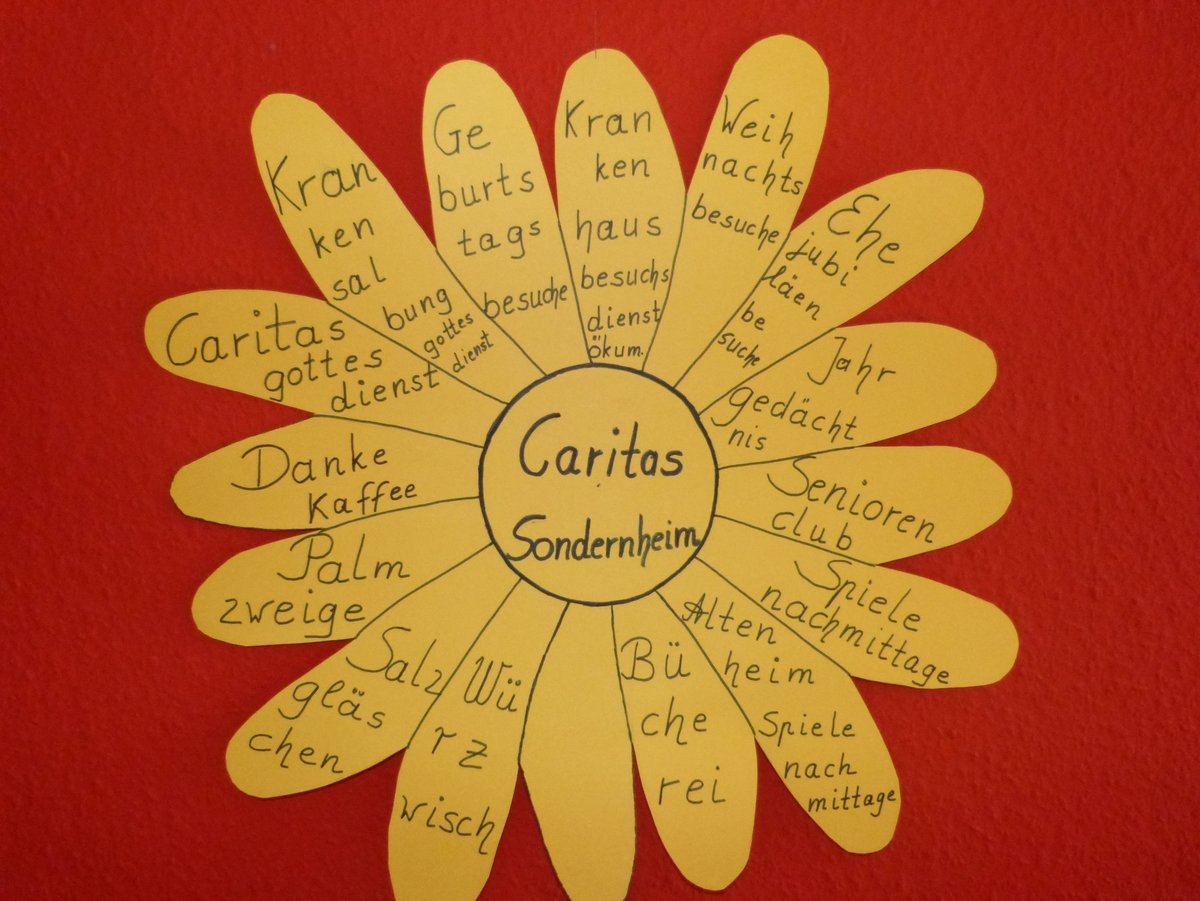 Caritas
Sondernheim
Kran
ken
sal
bung
gottes
dienst
Ge
burts
tags
besuche
Kran
ken
haus
besuchs
dienst
ökum.
Weih
nachts
besuche
Ehe
jubi
läen
be
suche
Jahr
gedächt
nis
Senioren
club
Spiele
nachmittage
Alten
heim
Spiele
nach
mittage
Bü
che
rei
Wü
rz
wisch
Salz
gläs
chen
Palm
zweige
Danke
Kaffee
Caritas
gottes
dienst